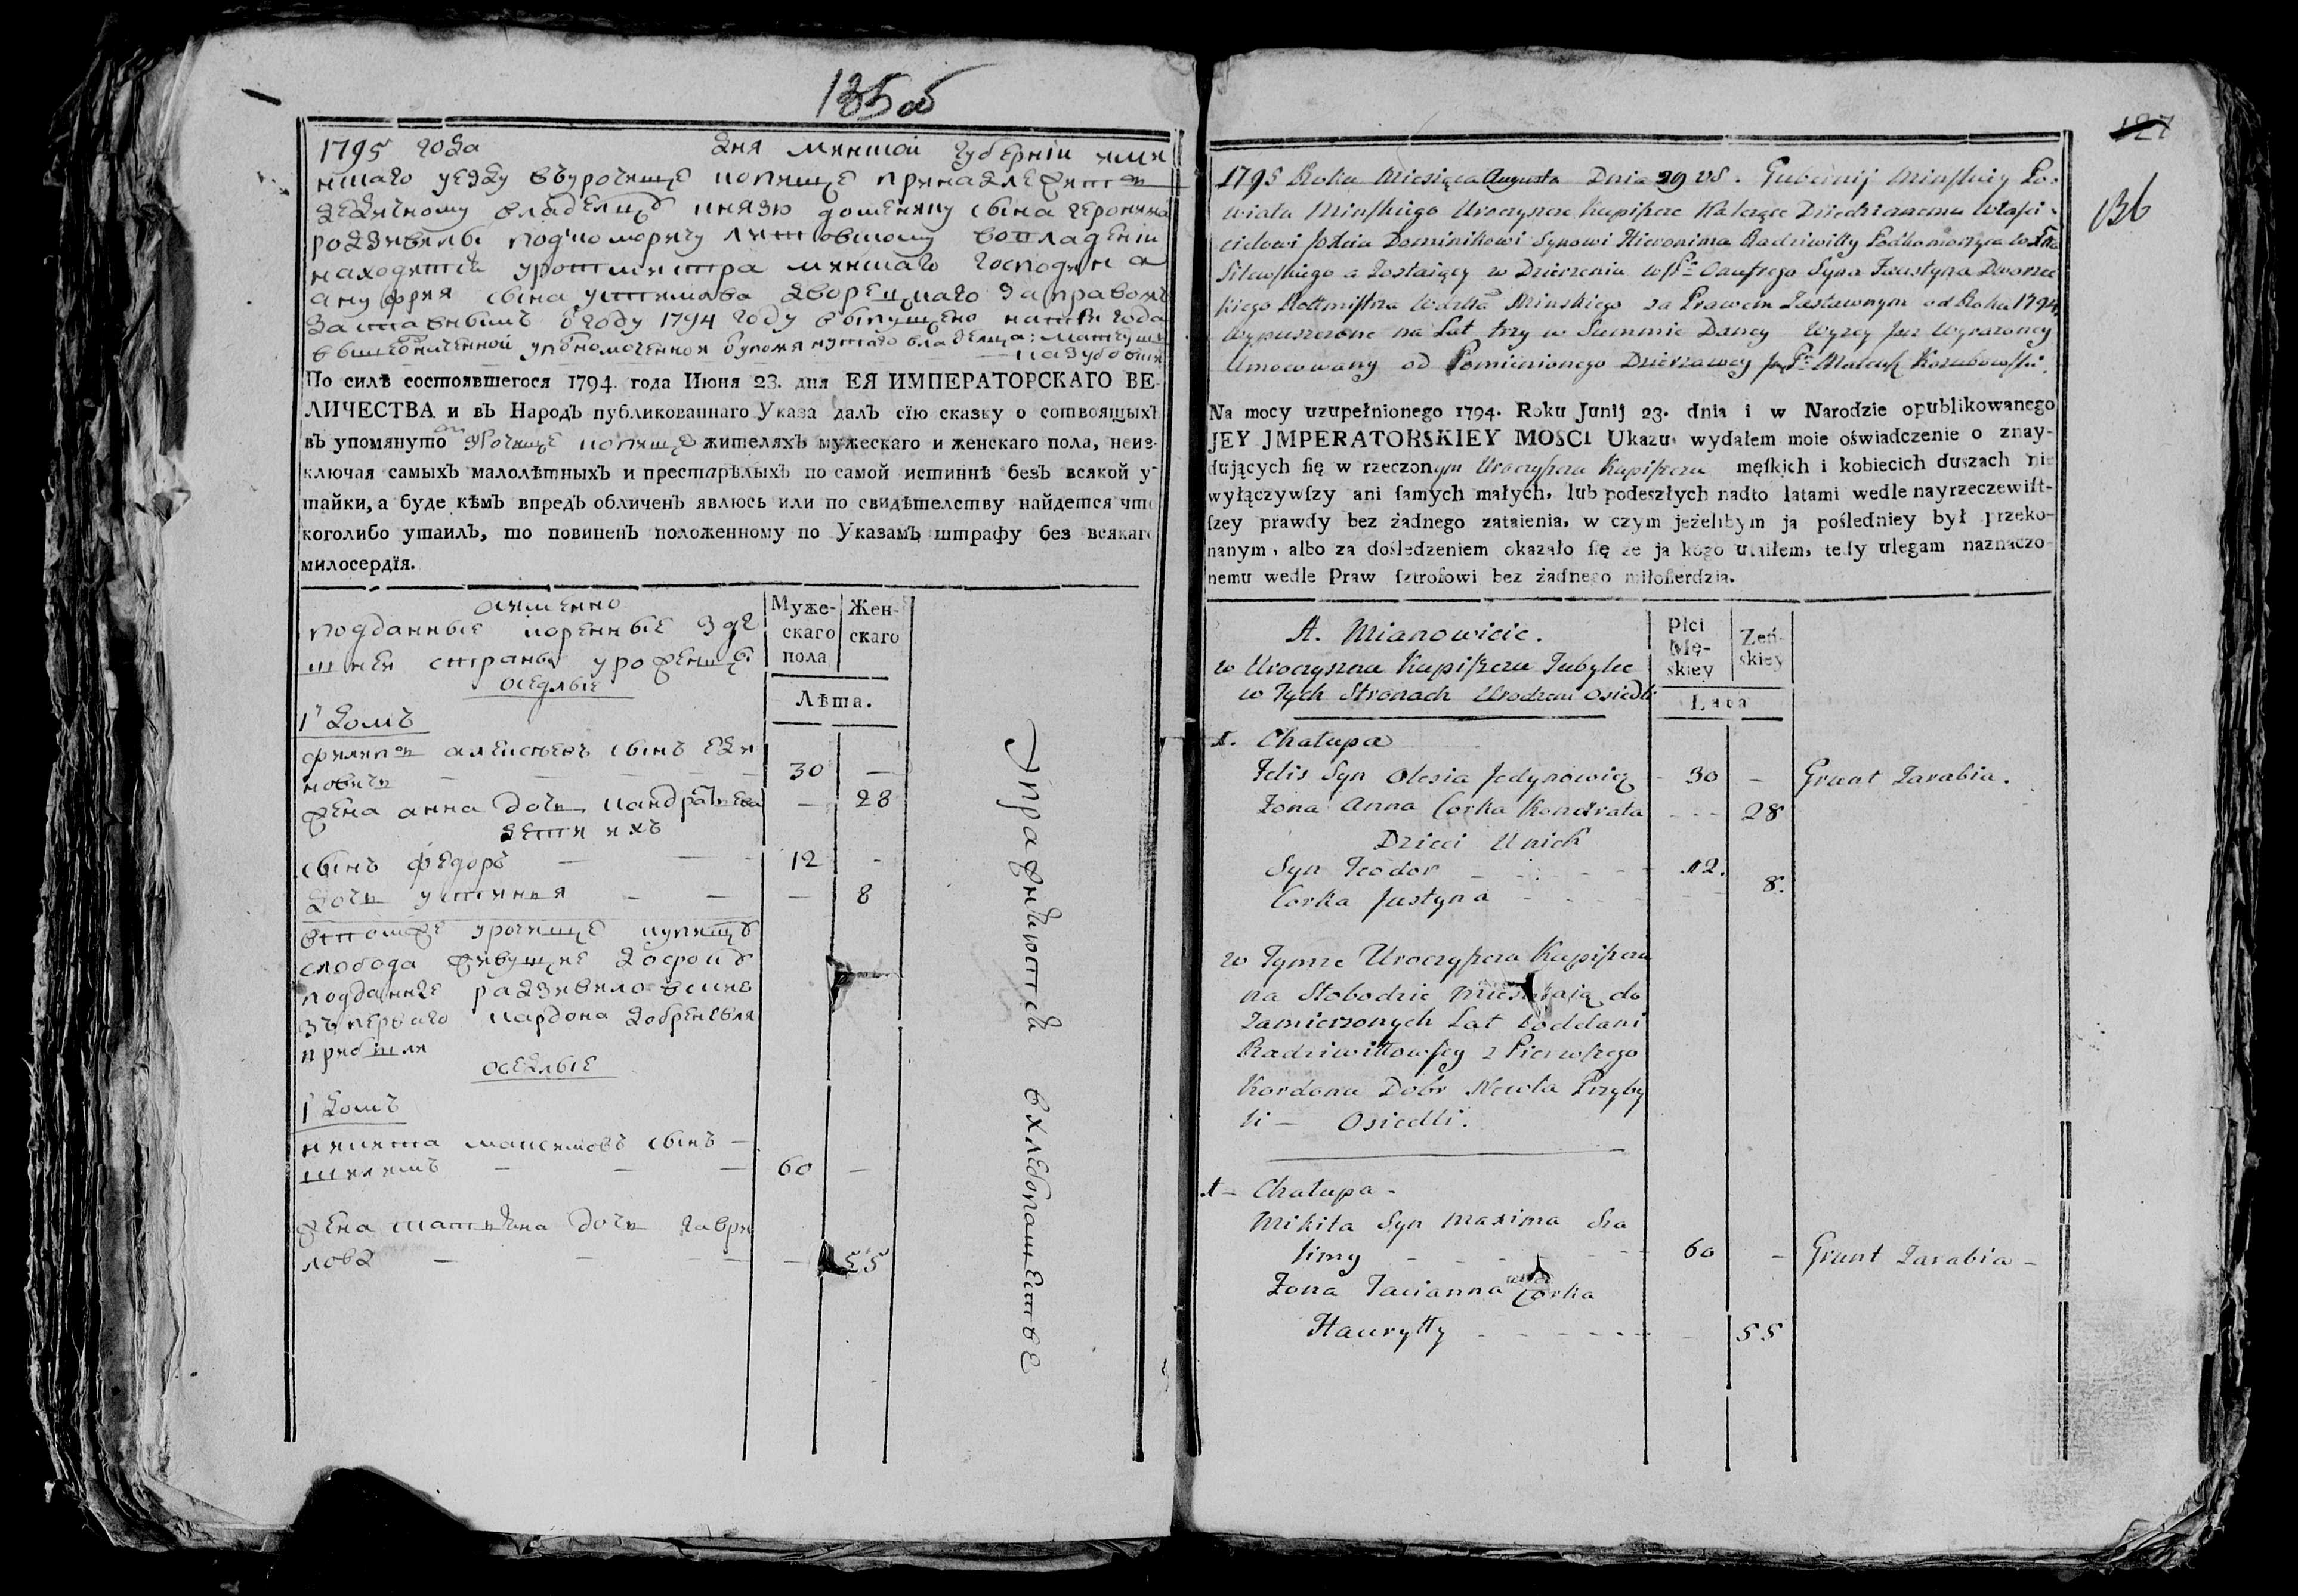 135 об
1795 года дня минской губернии мин
ншаго уезду въурочище копище принадлежит
дедичному владелцу князю доминику сына геронима
родзивилы подкоморичу литовскому во владении
находится у ротмистра минскаго господина
ануфрия сына устинова дворецкаго заправомъ
заставнымъ 1794 году выпущено на три года
По силѣ состоявшегося 1794 года Июня 23. дня ЕЯ ИМПЕРАТОРСКАГО ВЕ-
ЛИЧЕСТВА и въ Народъ публикованнаго Указа далъ сїю сказку о сотвоящыхъ
въ упомянуто урочище копище жителяхъ мужескаго и женскаго пола, неиз-
ключая самыхъ малолѣтныхъ и престарѣлыхъ по самой истиннѣ безъ всякой у-
тайки, а буде кѣмъ впредъ обличенъ явлюсь или по свидѣтелству найдется что
коголибо утаилъ, то повиненъ положенному по Указамъ штрафу без всякаго
милосердїя.
а имѣнно
подданные коренные зде
шней страны уроженцы
оседлые
Муже-
скаго
пола
Жен-
скаго
Лѣта.
1 домъ
филипъ алексеевъ сынъ еди
новичь — — — 30 —
жена анна дочь кондратьева — 28
дети ихъ
сынъ федоръ — — 12 -
дочь устинья — — — 8
втомже урочище
слобода живущие
подданые радзивиловские
зъ перваго кардона
прибыли
оседлые
1 домъ
никита максимовъ сынъ —
шилимъ — — — 60 —
жена татьяна дочь гаври
лова — — — — 55
Упражняются в хлебопашестве
127
136
1795 Roku Miesiąca Augusta Dnia 29 v.s. Gubernij Minskiey Po-
wiatu Minskiego Uroczyszcze Kupiszcze Należące Dziedzicznemu Własci-
cielowi Jo Xciu Dominikowi Synowi Hieronima Radziwiłły Podkomorzyca W. X.
Litewskiego a Zostaiący w Dzierżeniu WJPa Onufrego Syna Justyna Dworzec
kiego Rotmistrza Wdztta Minskiego za Prawem Zastawnym od Roku 1794
wypuszczone na Lat trzy w Summie Daney Wyżey Już Wyrażoney
Umocowany od Pomienionego Dzierżawcy JPn Mateusz Kozubowski.
Na mocy uzupełnionego 1794. Roku Junij 23. dnia i w Narodzie opublikowanego
JEY JMPERATORSKIEY MOSCI Ukazu, wydałem moie oświadczenie o znay-
dujących ſię w rzeczonym Uroczyszczu Kupiszczu męſkich i kobiecich duszach nie
wyłączywſzy ani ſamych małych, lub podeszłych nadto latami wedle nayrzeczewiſt-
ſzey prawdy bez żadnego zataienia, w czym jeżelibym ja pośledniey był przeko-
nanym, albo za dośledzeniem okazało ſię że ja kogo utaiłem, tedy ulegam naznaczo-
nemu wedle Praw ſztrofowi bez żadnego miłoſierdzia.
A. Mianowicie.
w Uroczyszczu Kupiszczu Tubylce
w Tych Stronach Urodzeni Osiedli
Płci
Mę-
skiey
Żeń-
skiey
Lata
1. Chałupa
Felis Syn Olesia Jedynowicz - 30 - Grunt Zarabia.
Żona Anna Corka Kondrata - - - 28
Dzieci Unich
Syn Teodor - - - - 12.
Corka Justyna - - - - 8.
w Tymże Uroczyszczu Kupiszczu
na Słobodzie Mieszkaią do
Zamierzonych Lat Poddani
Radziwiłłowscy z Pierwszego
Kordonu Dobr Newla Przyby
li - Osiedli.
1 - Chałupa -
Mikita Syn Maxima Sza
limy - - - - 60 - Grunt Zarabia -
Żona Tacianna Corka
Hauryłły - - - - - - 55